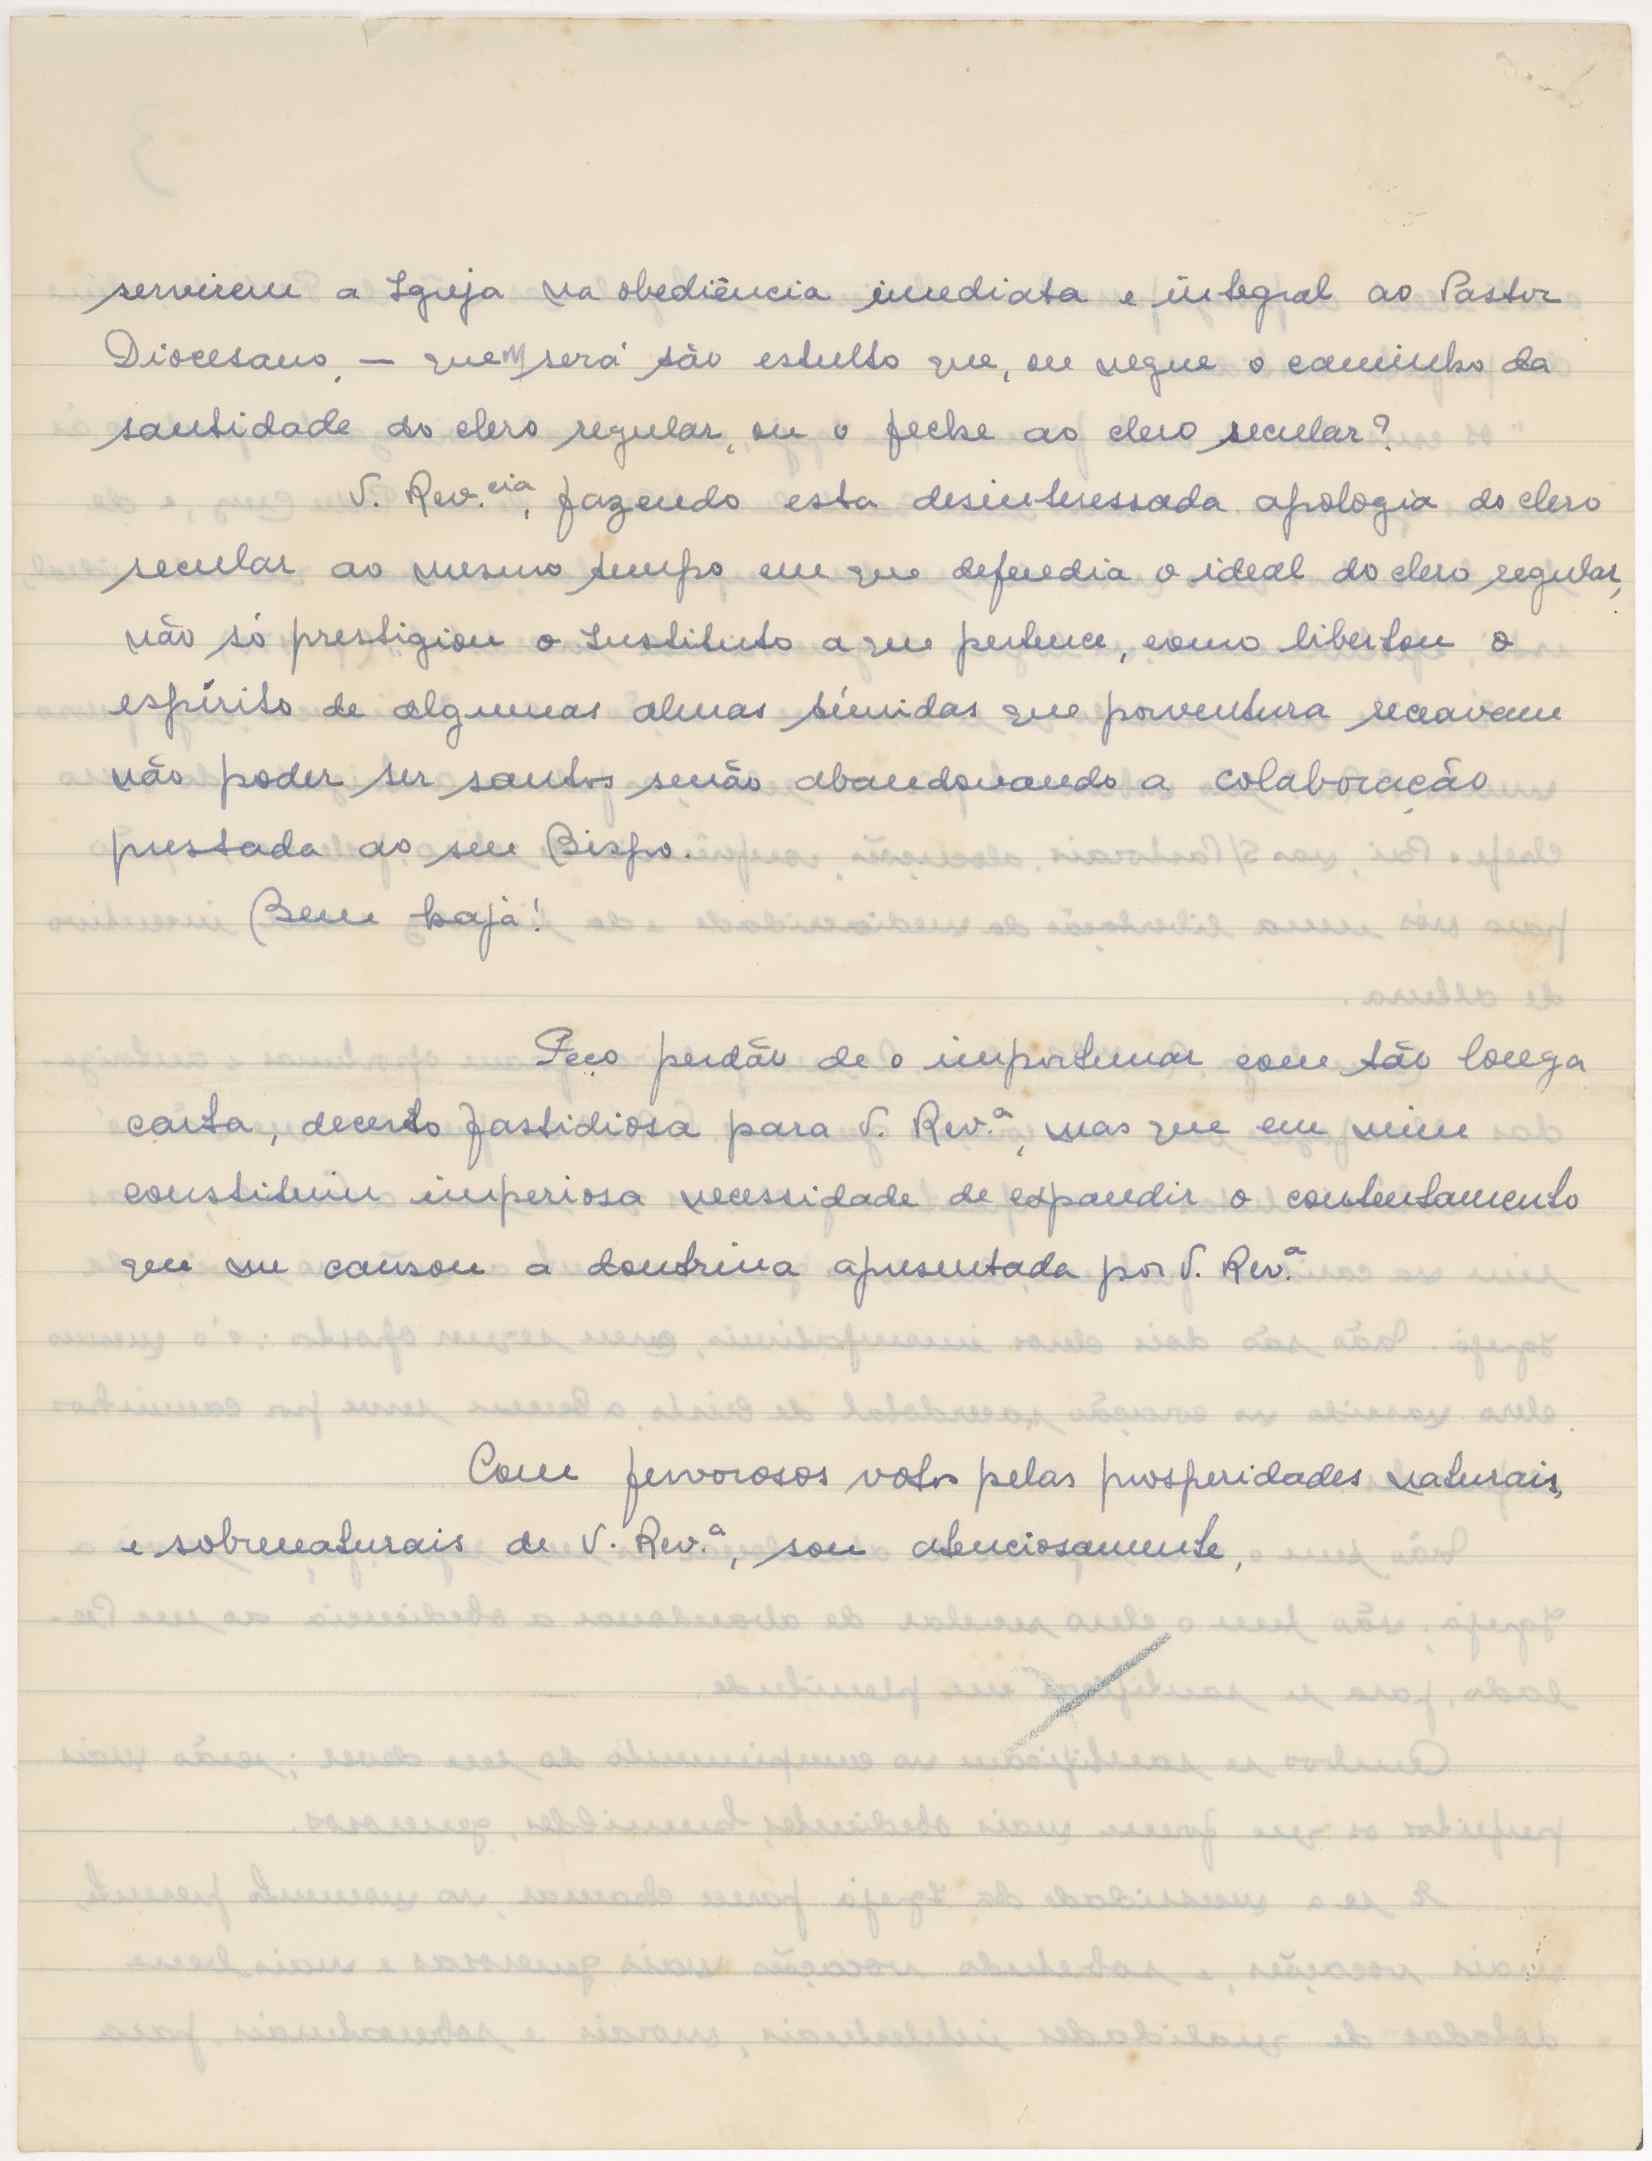 servirem a Igreja na obediência imediata e integral ao Pastor
Diocesano, — quem será tão estulto que, ou negue o caminho da
santidade do clero regular, ou o feche ao clero secular?
V. Rev.cia, fazendo esta desinteressada apologia do clero
secular ao mesmo tempo em que defendia o ideal do clero regular,
não só prestigiou o Instituto a que pertence, como libertou o
espírito de algumas almas tímidas que porventura receavam
não poder ser santos senão abandonando a colaboração
prestada ao seu Bispo.
Bem haja!
Peço perdão de o importunar com tão longa
carta, decerto fastidiosa para V. Rev.ª, mas que em mim
constituiu imperiosa necessidade de expandir o contentamento
que me causou a doutrina apresentada por V. Rev.ª
Com fervorosos votos pelas prosperidades naturais,
e sobrenaturais de V. Rev.ª, sou atenciosamente,